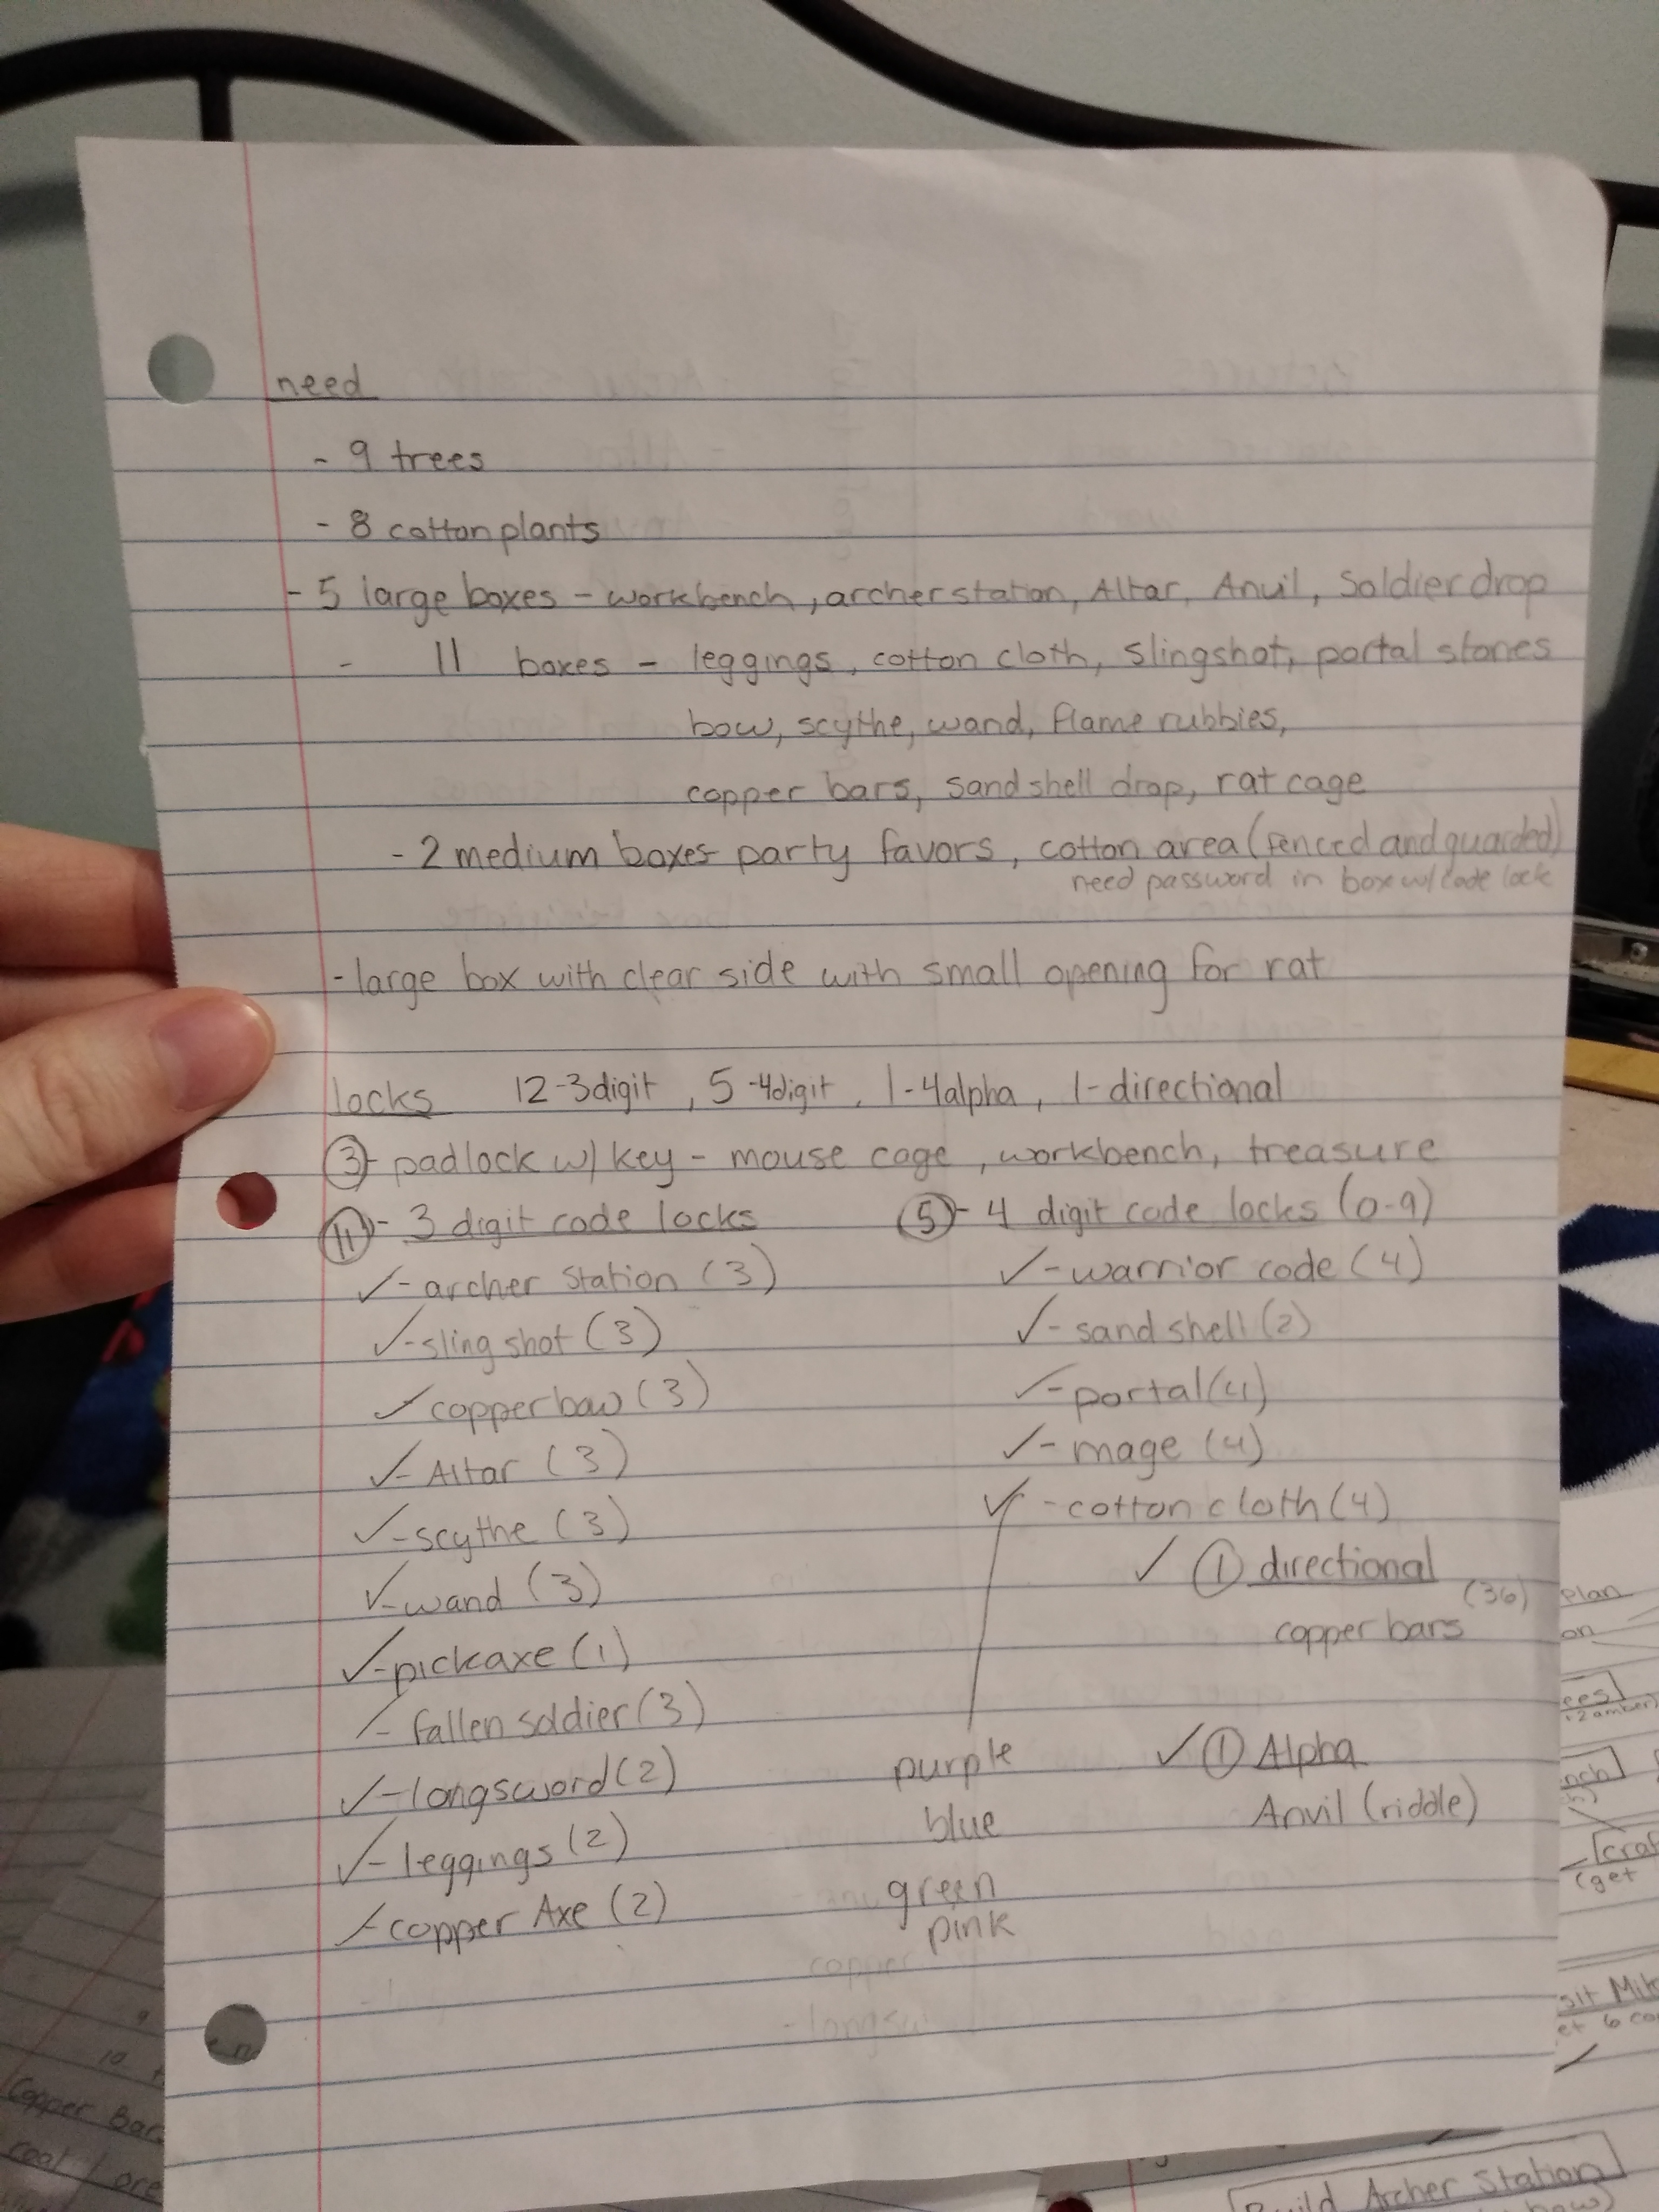 need
- 9 trees
- 8 cotton plants
- 5 large boxes - workbench, archer station, Altar, Anvil, Soldier drop
- 11 boxes - leggings, cotton cloth, slingshot, portal stones
bow, scythe, wand, flame rubbies,
copper bars, sand shell drop, rat cage
- 2 medium boxes party favors, cotton area (fenced and guarded)
need password in box w/ code lock
- large box with clear side with small opening for rat
locks 12-3digit, 5-4digit, 1-4alpha, 1-directional
③- padlock w/ key - mouse cage, workbench, treasure
⑪- 3 digit code locks
✓- archer station (3)
✓- sling shot (3)
✓ copper bow (3)
✓- Altar (3)
✓- scythe (3)
✓- wand (3)
✓- pickaxe (1)
✓- fallen soldier (3)
✓- longsword (2)
✓- leggings (2)
✓- copper Axe (2)
⑤- 4 digit code locks (0-9)
✓- warrior code (4)
✓- sand shell (2)
✓- portal (4)
✓- mage (4)
✓- cotton cloth (4)
✓ ① directional
(36)
copper bars
purple
blue
green
pink
✓ ① Alpha
Anvil (riddle)
plan
on
ees
nch
craf
(get
sit
et 6 co
10
Copper Bar
coal / ore
Build Archer Station
bow)